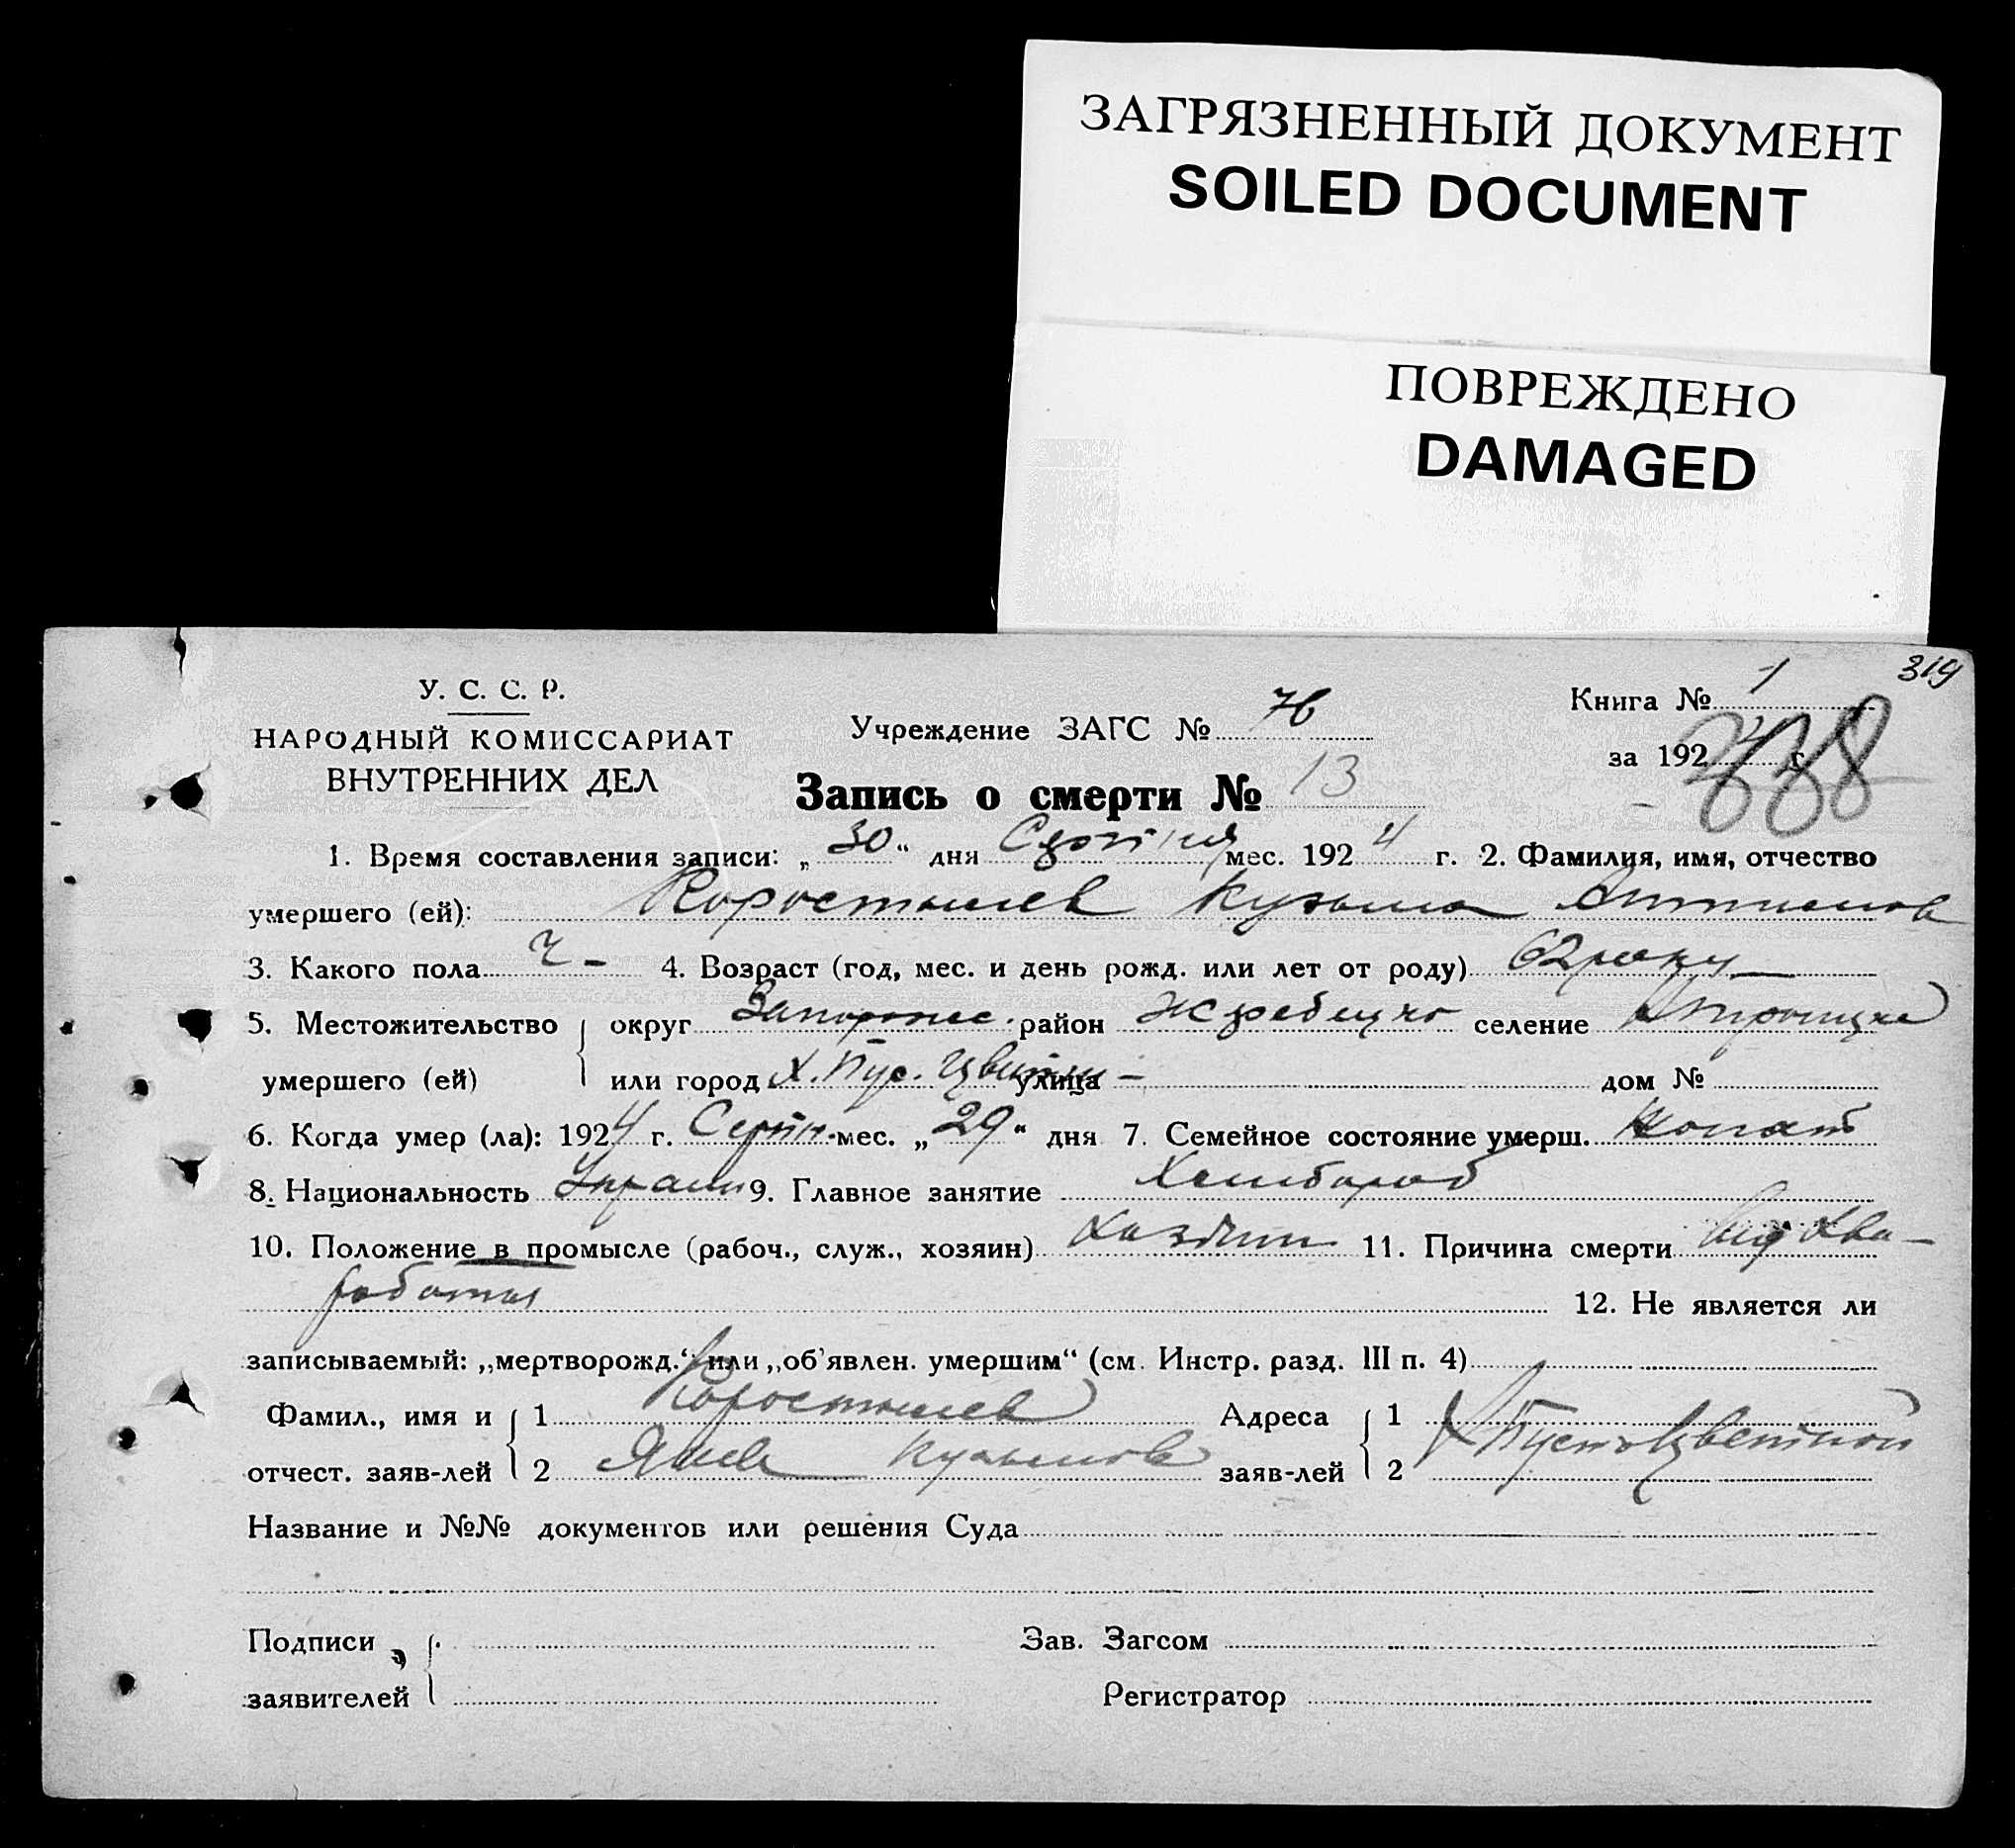 ЗАГРЯЗНЕННЫЙ ДОКУМЕНТ
SOILED DOCUMENT
ПОВРЕЖДЕНО
DAMAGED
319
У. С. С. Р.
НАРОДНЫЙ КОМИССАРИАТ
ВНУТРЕННИХ ДЕЛ
Учреждение ЗАГС № 76
Книга № 1
за 1924 г.
338
Запись о смерти № 13
1. Время составления записи: „30“ дня мес. 1924 г. 2. Фамилия, имя, отчество
умершего (ей): Коростылев Кузьма
3. Какого пола ч - 4. Возраст (год, мес. и день рожд. или лет от роду) 62 роки
5. Местожительство округ Запорож. район Жребецко селение
умершего (ей) или город Х. Пус. Цвитни улица – дом №
6. Когда умер (ла): 1924 г. Серпн. мес. „29“ дня 7. Семейное состояние умерш. жонат
8. Национальность Украин 9. Главное занятие Хлибороб
10. Положение в промысле (рабоч., служ., хозяин) Хазяин 11. Причина смерти Вид Хва-
робы
12. Не является ли
записываемый: „мертворожд.“ или „об'явлен. умершим“ (см. Инстр. разд. III п. 4)
Фамил., имя и 1 Коростылев Адреса 1 Х Пустоцветной
отчест. заяв-лей 2 Яков Кузьмов заяв-лей 2
Название и №№ документов или решения Суда
Подписи Зав. Загсом
заявителей Регистратор